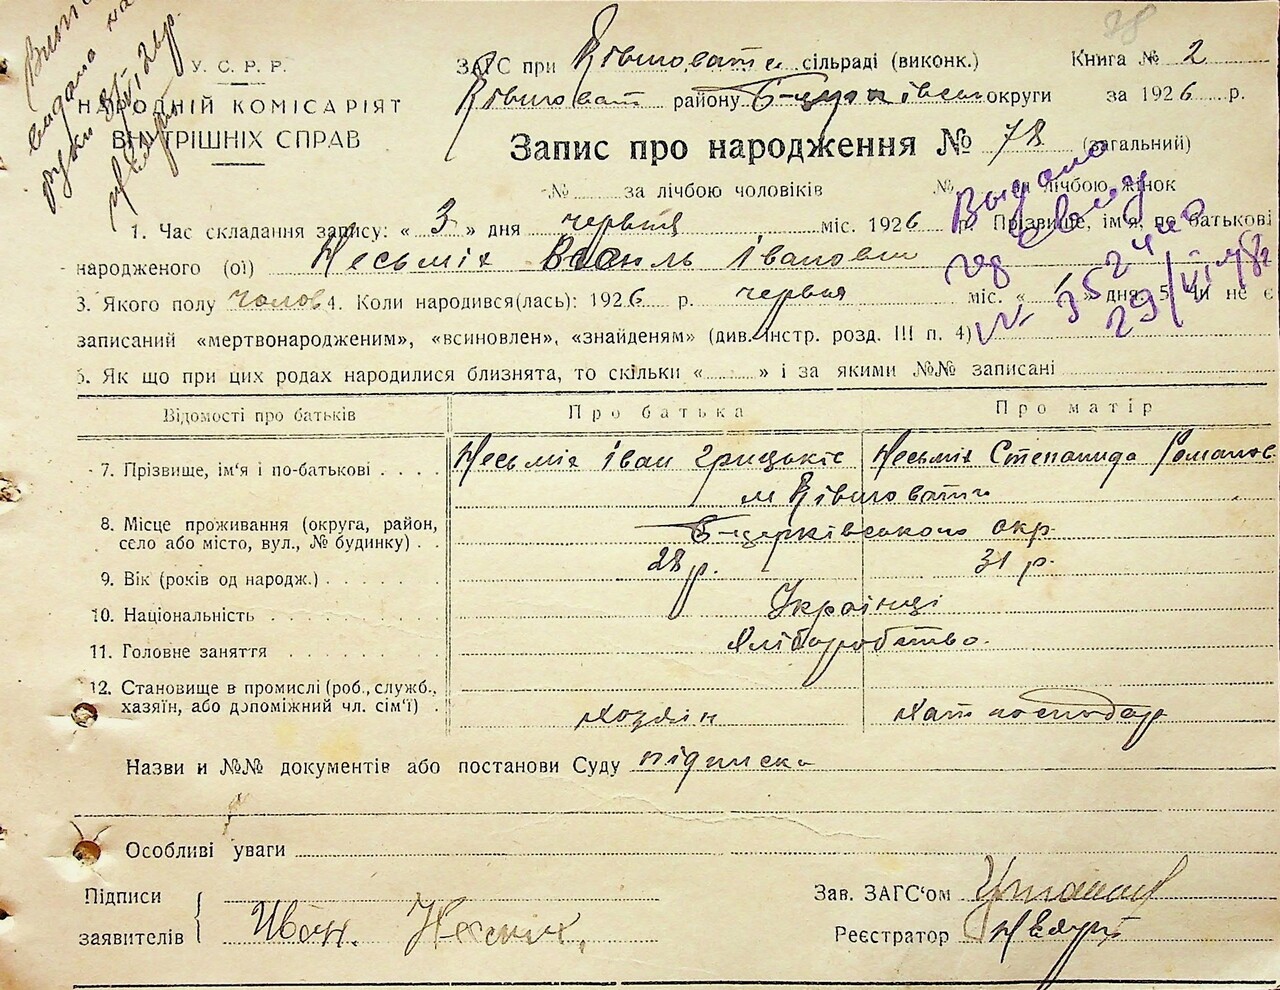 78
У. С. Р. Р.
НАРОДНІЙ КОМІСАРІЯТ
ВНУТРІШНІХ СПРАВ
ЗАГС при сільраді (виконк.)
Книга № 2
району Б-церківської округи за 1926 р.
Запис про народження № 78 (загальний)
№ за лічбою чоловіків № за лічбою жінок
1. Час складання запису: « 3 » дня червня міс. 1926 р. Прізвище, ім'я, по батькові
народженого (ої) Несьмих Василь Іванович
3. Якого полу чолов 4. Коли народився(лась): 1926 р. червня міс. « 1 » дня. 5. Чи не є
записаний «мертвонародженим», «всиновлен», «знайденям» (див. інстр. розд. III п. 4)
6. Як що при цих родах народилися близнята, то скільки « » і за якими №№ записані
Видано
29/VI
Відомості про батьків Про батька Про матір
7. Прізвище, ім'я і по-батькові Несьмих Іван Грицьків Несьмих Степанида Романов
8. Місце проживання (округа, район,
село або місто, вул., № будинку) Б-церківського окр.
9. Вік (років од народж.) 28 р. 31 р.
10. Національність Українці
11. Головне заняття Хліборобство.
12. Становище в промислі (роб., служб.,
хазяїн, або допоміжний чл. сім'ї) хозяін хат господар
Назви и №№ документів або постанови Суду підписка
Особливі уваги
Підписи
заявителів Иван. Несмих.
Зав. ЗАГС'ом
Реєстратор